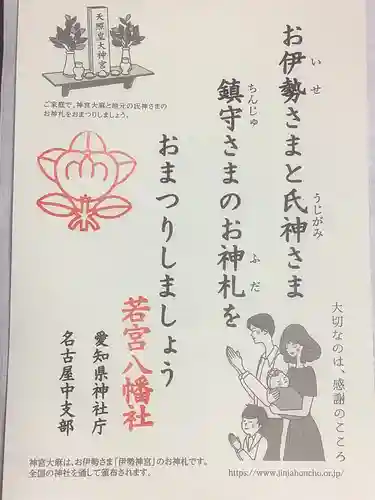 お伊勢さまと氏神さま
いせ
うじがみ
鎮守さまのお神札を
ちんじゅ
ふだ
おまつりしましょう
天照皇大神宮
ご家庭で、神宮大麻と地元の氏神さまの
お神札をおまつりしましょう。
若宮八幡社
愛知県神社庁
名古屋中支部
大切なのは、感謝のこころ
神宮大麻は、お伊勢さま「伊勢神宮」のお神札です。
全国の神社を通して頒布されます。
https://www.jinjahoncho.or.jp/